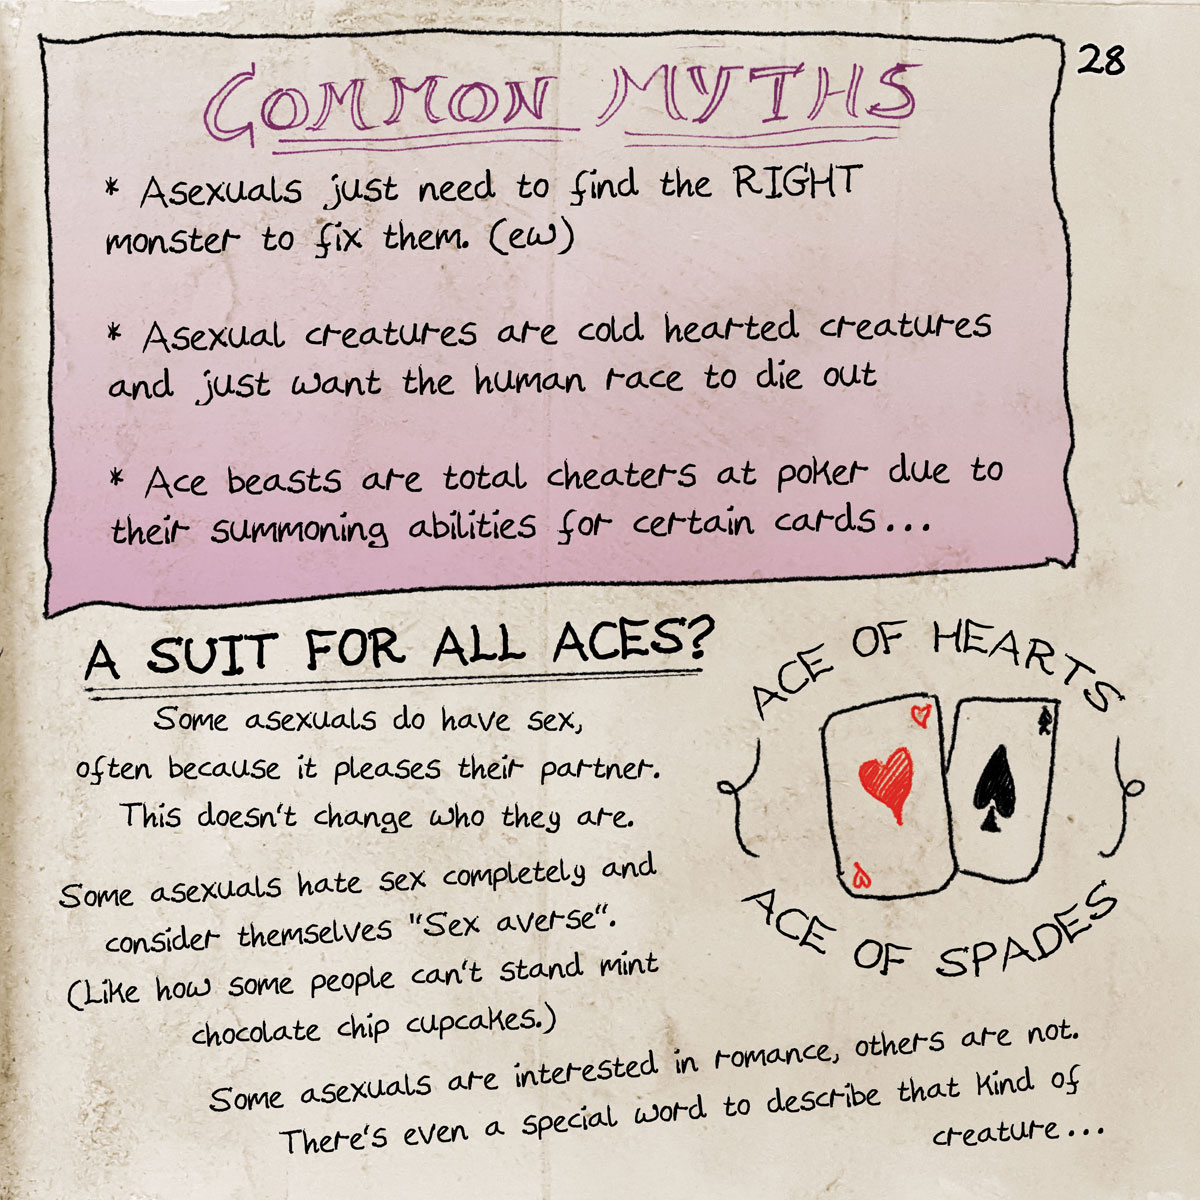 28
COMMON MYTHS
* Asexuals just need to find the RIGHT
monster to fix them. (ew)
* Asexual creatures are cold hearted creatures
and just want the human race to die out
* Ace beasts are total cheaters at poker due to
their summoning abilities for certain cards...
A SUIT FOR ALL ACES?
Some asexuals do have sex,
often because it pleases their partner.
This doesn't change who they are.
Some asexuals hate sex completely and
consider themselves "Sex averse".
(Like how some people can't stand mint
chocolate chip cupcakes.)
ACE OF HEARTS
ACE OF SPADES
Some asexuals are interested in romance, others are not.
There's even a special word to describe that kind of
creature...